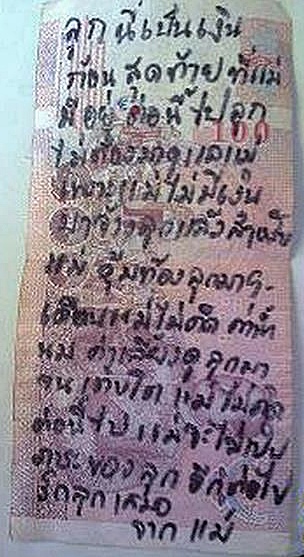 ลูก นี่เป็นเงิน
ก้อน สุดท้าย ที่แม่
มีอยู่ ต่อนี้ไปลูก
100
ไม่ต้องมาดูแลแม่
เพราะแม่ไม่มีเงิน
มาจ้างลูกแล้วสำหรับ
แม่ อุ้มท้องลูกมา 9
เดือนแม่ไม่คิด ค่าน้ำ
นม ค่าเลี้ยงดู ลูกมา
จน เติบโต แม่ไม่คิด
ต่อนี้ไป แม่จะไม่เป็น
ภาระของ ลูก อีกต่อไป
รักลูกเสมอ
จาก แม่